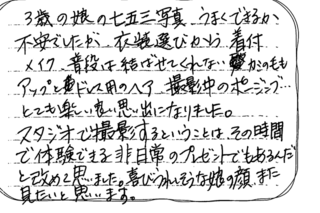 3歳の娘の七五三写真、うまくできるか
不安でしたが、衣装選びから着付
メイク、普段は結ばせてくれないかみのもも
アップとドレス用のヘア、撮影中のポージング…
とても楽しい思い出になりました。
スタジオで撮影するということは、その時間
で体験できる非日常のプレゼントでもあるんだ
と改めて思いました。喜びうれしそうな娘の顔、また
見たいと思います。